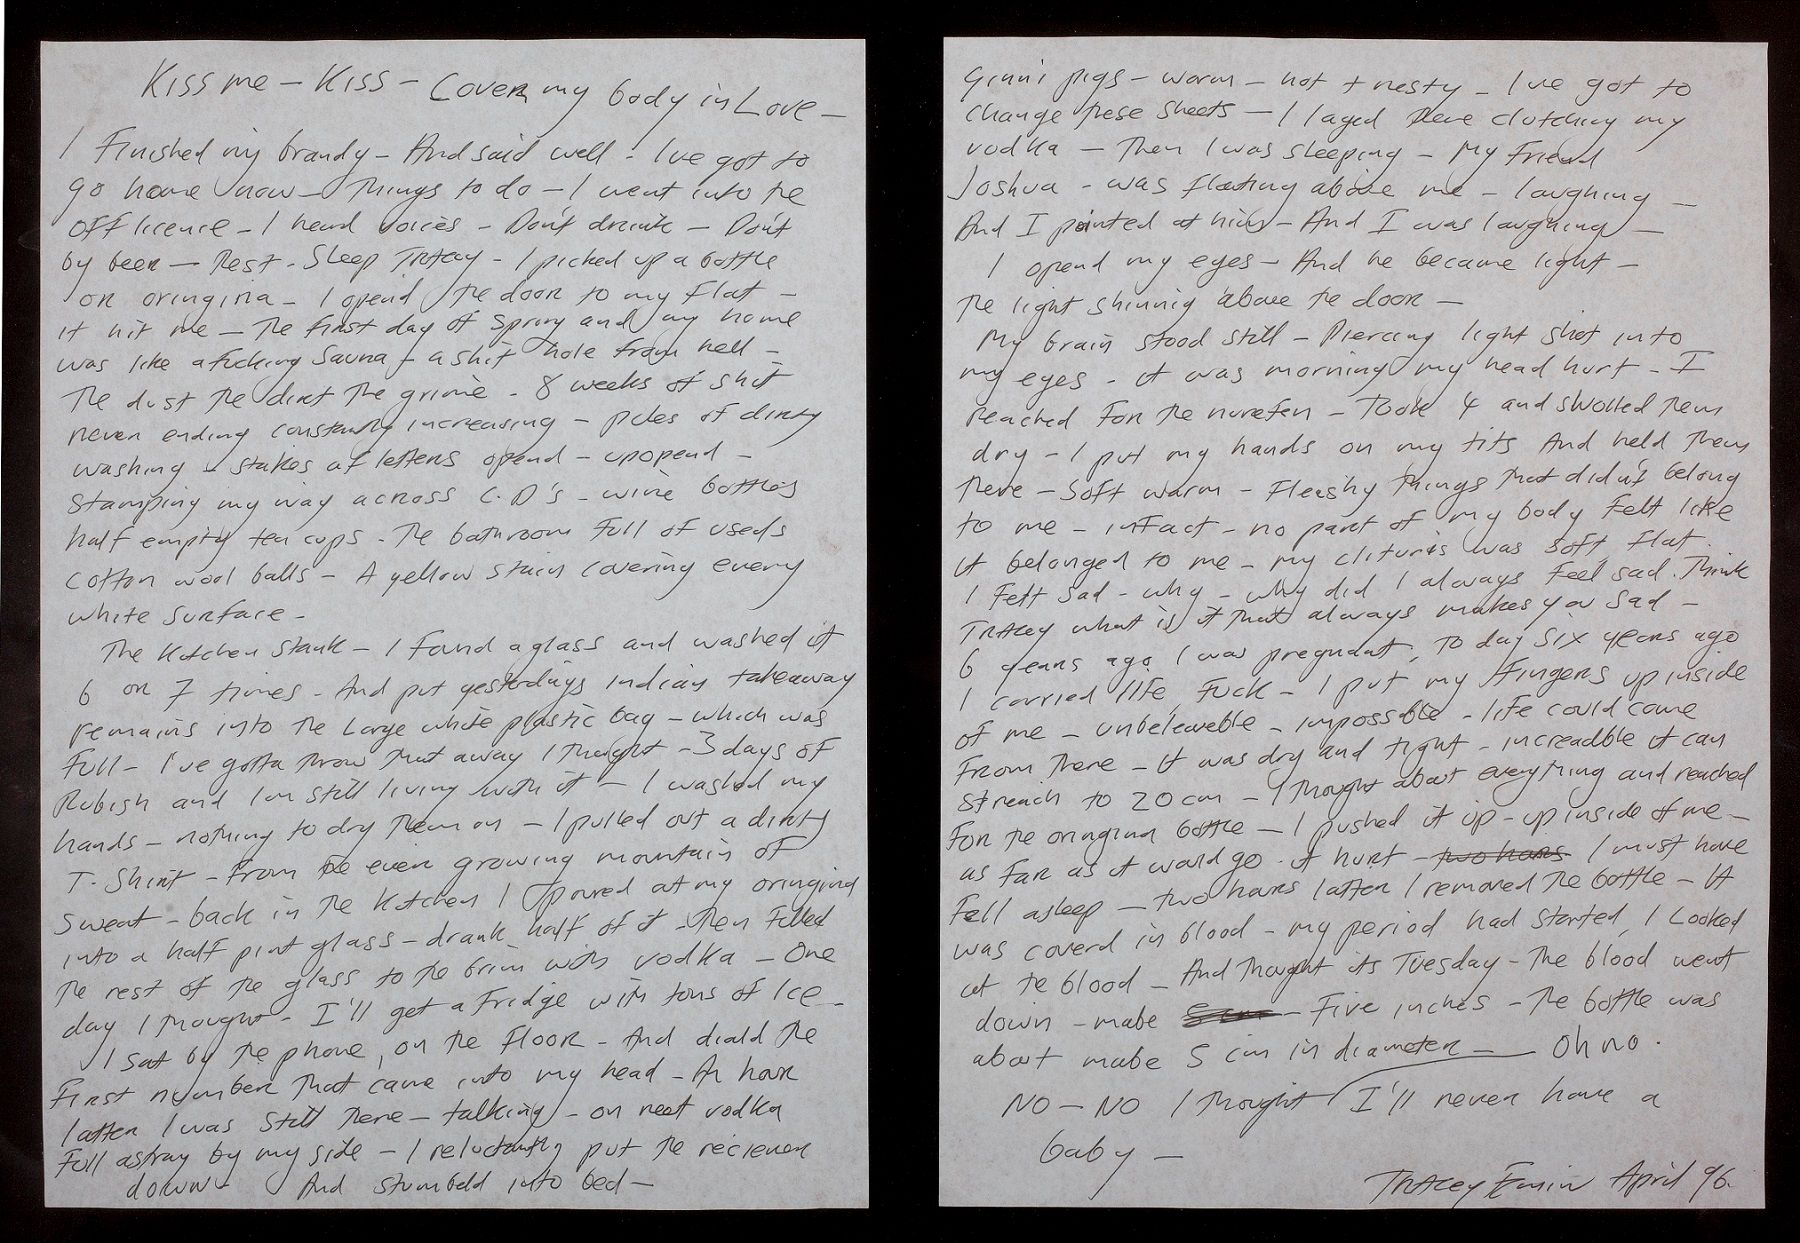 Kiss me – Kiss – Cover my body in Love –
I Finished my brandy – And said well – I've got to
go home now – Things to do – I went into the
off licence – I heard voices – Don't drink – Don't
by beer – Rest – Sleep Tracey – I picked up a bottle
on oringina – I opend the door to my flat –
it hit me – The first day of Spring and my home
was like a fucking Sauna – a shit hole from hell –
The dust the dirt the grime – 8 weeks of shit
never ending constantly increasing – piles of dirty
washing – stakes of letters opend – upopend –
Stamping my way across C.D's – wine bottles
half empty tea cups – The bathroom full of useds
cotton wool balls – A yellow stain covering every
white surface –
The Kitchen stank – I found a glass and washed it
6 or 7 times – And put yesterdays indian takeaway
remains into the Large white plastic bag – which was
full – I've gotta throw that away I thought – 3 days of
Rubish and I'm still living with it – I washed my
hands – nothing to dry them on – I pulled out a dirty
T. Shirt – From the ever growing mountain of
sweat – back in the Kitchen I poured out my oringina
into a half pint glass – drank half of it – Then filled
the rest of the glass to the brim with vodka – One
day I thought – I'll get a fridge with tons of Ice –
I sat by the phone, on the floor – And diald the
First number that came into my head – An hour
latter I was still there – talking – on neet vodka
Full astray by my side – I reluctantly put the reciever
down – And stumbeld into bed –
Ginni pigs – worm – hot + nesty – I've got to
change these sheets – I layed there clutching my
vodka – Then I was sleeping – My Friend
Joshua – was floating above me – laughing –
And I pointed at him – And I was laughing –
I opend my eyes – And he became light –
The light shinnig above the door –
My brain stood still – Piercing light shot into
my eyes – it was morning my head hurt – I
reached for the nurefen – Took 4 and swolled them
dry – I put my hands on my tits And held them
there – Soft warm – Fleashy things that didn't belong
to me – infact – no part of my body felt like
it belonged to me – my clituris was soft flat.
I Felt sad – why – why did I always feel sad. Think
Tracey what is it that always makes you sad –
6 years ago I was pregnant, to day six years ago
I carried life Fuck – I put my fingers up inside
of me – unbeleveble – impossible – life could come
From there – It was dry and tight – increadble it can
streach to 20 cm – I thought about everything and reached
For the oringina bottle – I pushed it up – up inside of me –
as far as it would go. it hurt – two hours I must have
Fell asleep – two hours latter I removed the bottle – It
was coverd in blood – my period had started, I Looked
at the blood – And thought its Tuesday – The blood went
down – mabe – Five inches – The bottle was
about mabe 5 cm in diameter – Oh no.
NO – NO I thought I'll never have a
baby –
Tracey Emin April 96.